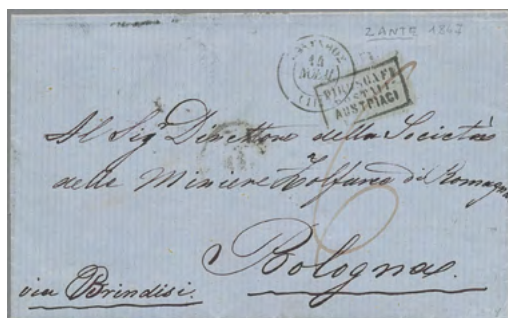 ZANTE
14
PIROSCAFI
POSTALI
AUSTRIACI
Al Sigr Direttore della Società
delle Miniere Zolfuree di Romagna
Bologna.
via Brindisi.
6